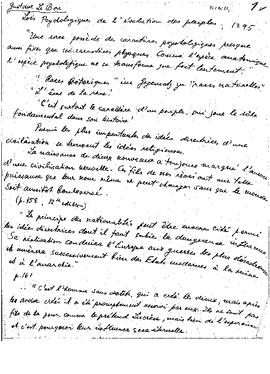 Gustave Le Bon
Lois Psychologiques de l'évolution des peuples, 1895
Une race possède de caractères psychologiques presque
aussi fixes que ses caractères physiques. Comme l'espèce anatomique
l'espèce psychologique ne se transforme que fort lentement.
"Races historiques"
"L'âme de la race"
C'est surtout le caractère d'un peuple, qui joue le rôle
fondamental dans son histoire
Parmi les plus importantes des idées directrices d'une
civilisation se trouvent les idées religieuses.
La naissance de dieux nouveaux a toujours marqué l'aurore
d'une civilisation nouvelle. Ces fils de nos rêves ont une telle
puissance que leur nom même ne peut changer sans que le monde
soit aussitôt bouleversé.
(p. 158, 12e édition)
"Le principe des nationalités peut être encore cité parmi
les idées directrices dont il faut subir la dangereuse influence
Sa réalisation conduira l'Europe aux guerres les plus désastreuses
et amènera successivement bien des Etats modernes à la ruine
et à l'anarchie"
p. 161
"C'est l'homme sans doute, qui a créé les dieux, mais après
les avoir créés il a été promptement asservi par eux. Ils ne sont pas
fils de la peur, comme le prétend Lucrèce, mais bien de l'espérance,
et c'est pourquoi leur influence sera éternelle.